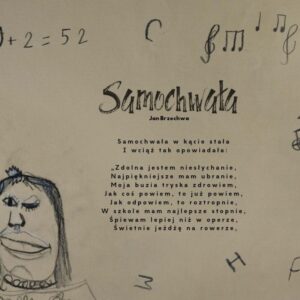 + 2 = 52
Samochwała
Jan Brzechwa
Samochwała w kącie stała
I wciąż tak opowiadała:
„Zdolna jestem niesłychanie,
Najpiękniejsze mam ubranie,
Moja buzia tryska zdrowiem,
Jak coś powiem, to już powiem,
Jak odpowiem, to roztropnie,
W szkole mam najlepsze stopnie,
Śpiewam lepiej niż w operze,
Świetnie jeżdżę na rowerze,
H